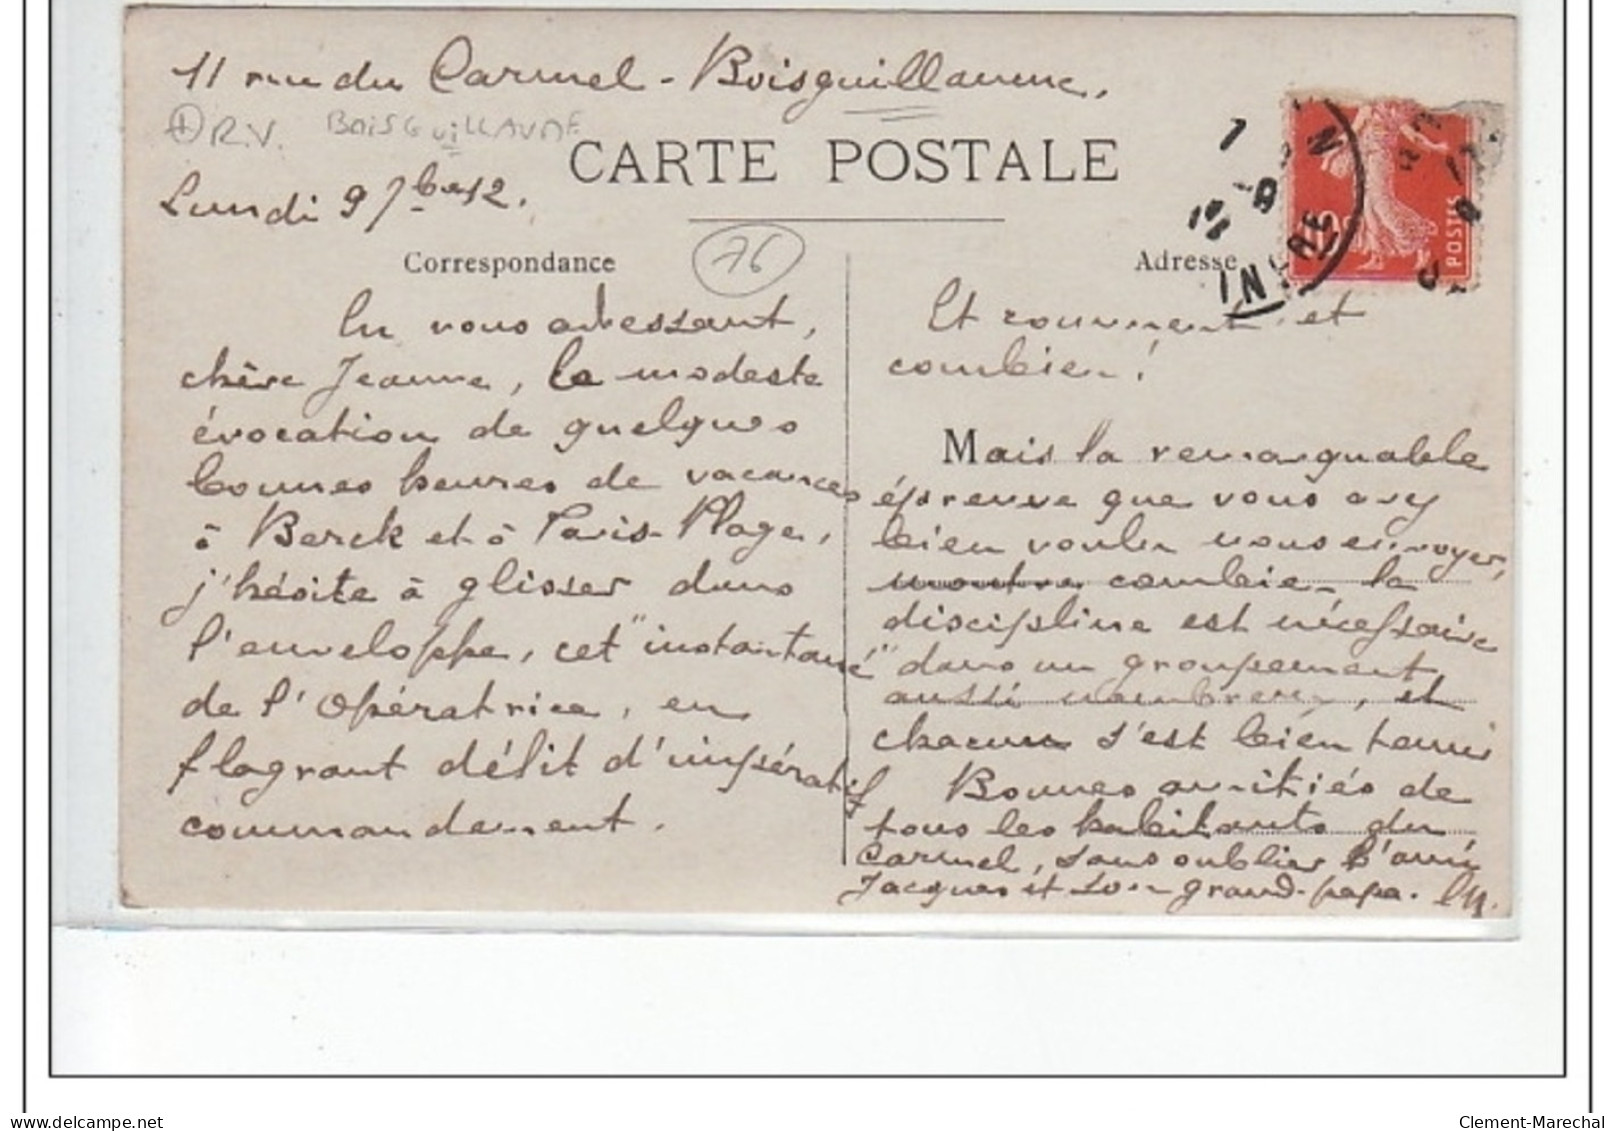 11 rue du Carmel - Boisguillaume,
R.V. BOISGUILLAUME
CARTE POSTALE
Lundi 9 7bre 12.
76
Correspondance
En vous adressant,
chère Jeanne, la modeste
évocation de quelques
bonnes heures de vacances
à Berck et à Paris-Plage,
j'hésite à glisser dans
l'enveloppe, cet "instantané"
de l'Opératrice, en
flagrant délit d'impératif
commandement.
Adresse
INDRE
POSTES
Et comment et
combien !
Mais la remarquable
épreuve que vous avez
bien voulu nous envoyer,
montre combien la
discipline est nécessaire
dans un groupement
aussi nombreux, et
chacun s'est bien tenu
Bonnes amitiés de
tous les habitants du
Carmel, sans oublier l'ami
Jacques et son grand-papa.
delcampe.net
Clement-Marechal